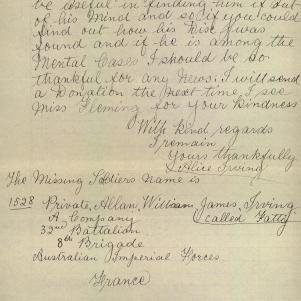 be useful in finding him if out
of his Mind and so if you could
find out how his Kist was
found and if he is among the
Mental Cases I should be so
thankful for any News: I will send
a Donation the Next time, I see
Miss Fleming for your kindness
With kind regards
I remain
Yours thankfully
Alice Irving
The Missing Soldiers name is
1528 Private, Allan, William, James, Irving
A Company called Fatty
32nd Battalion
8th Brigade
Australian Imperial Forces
France